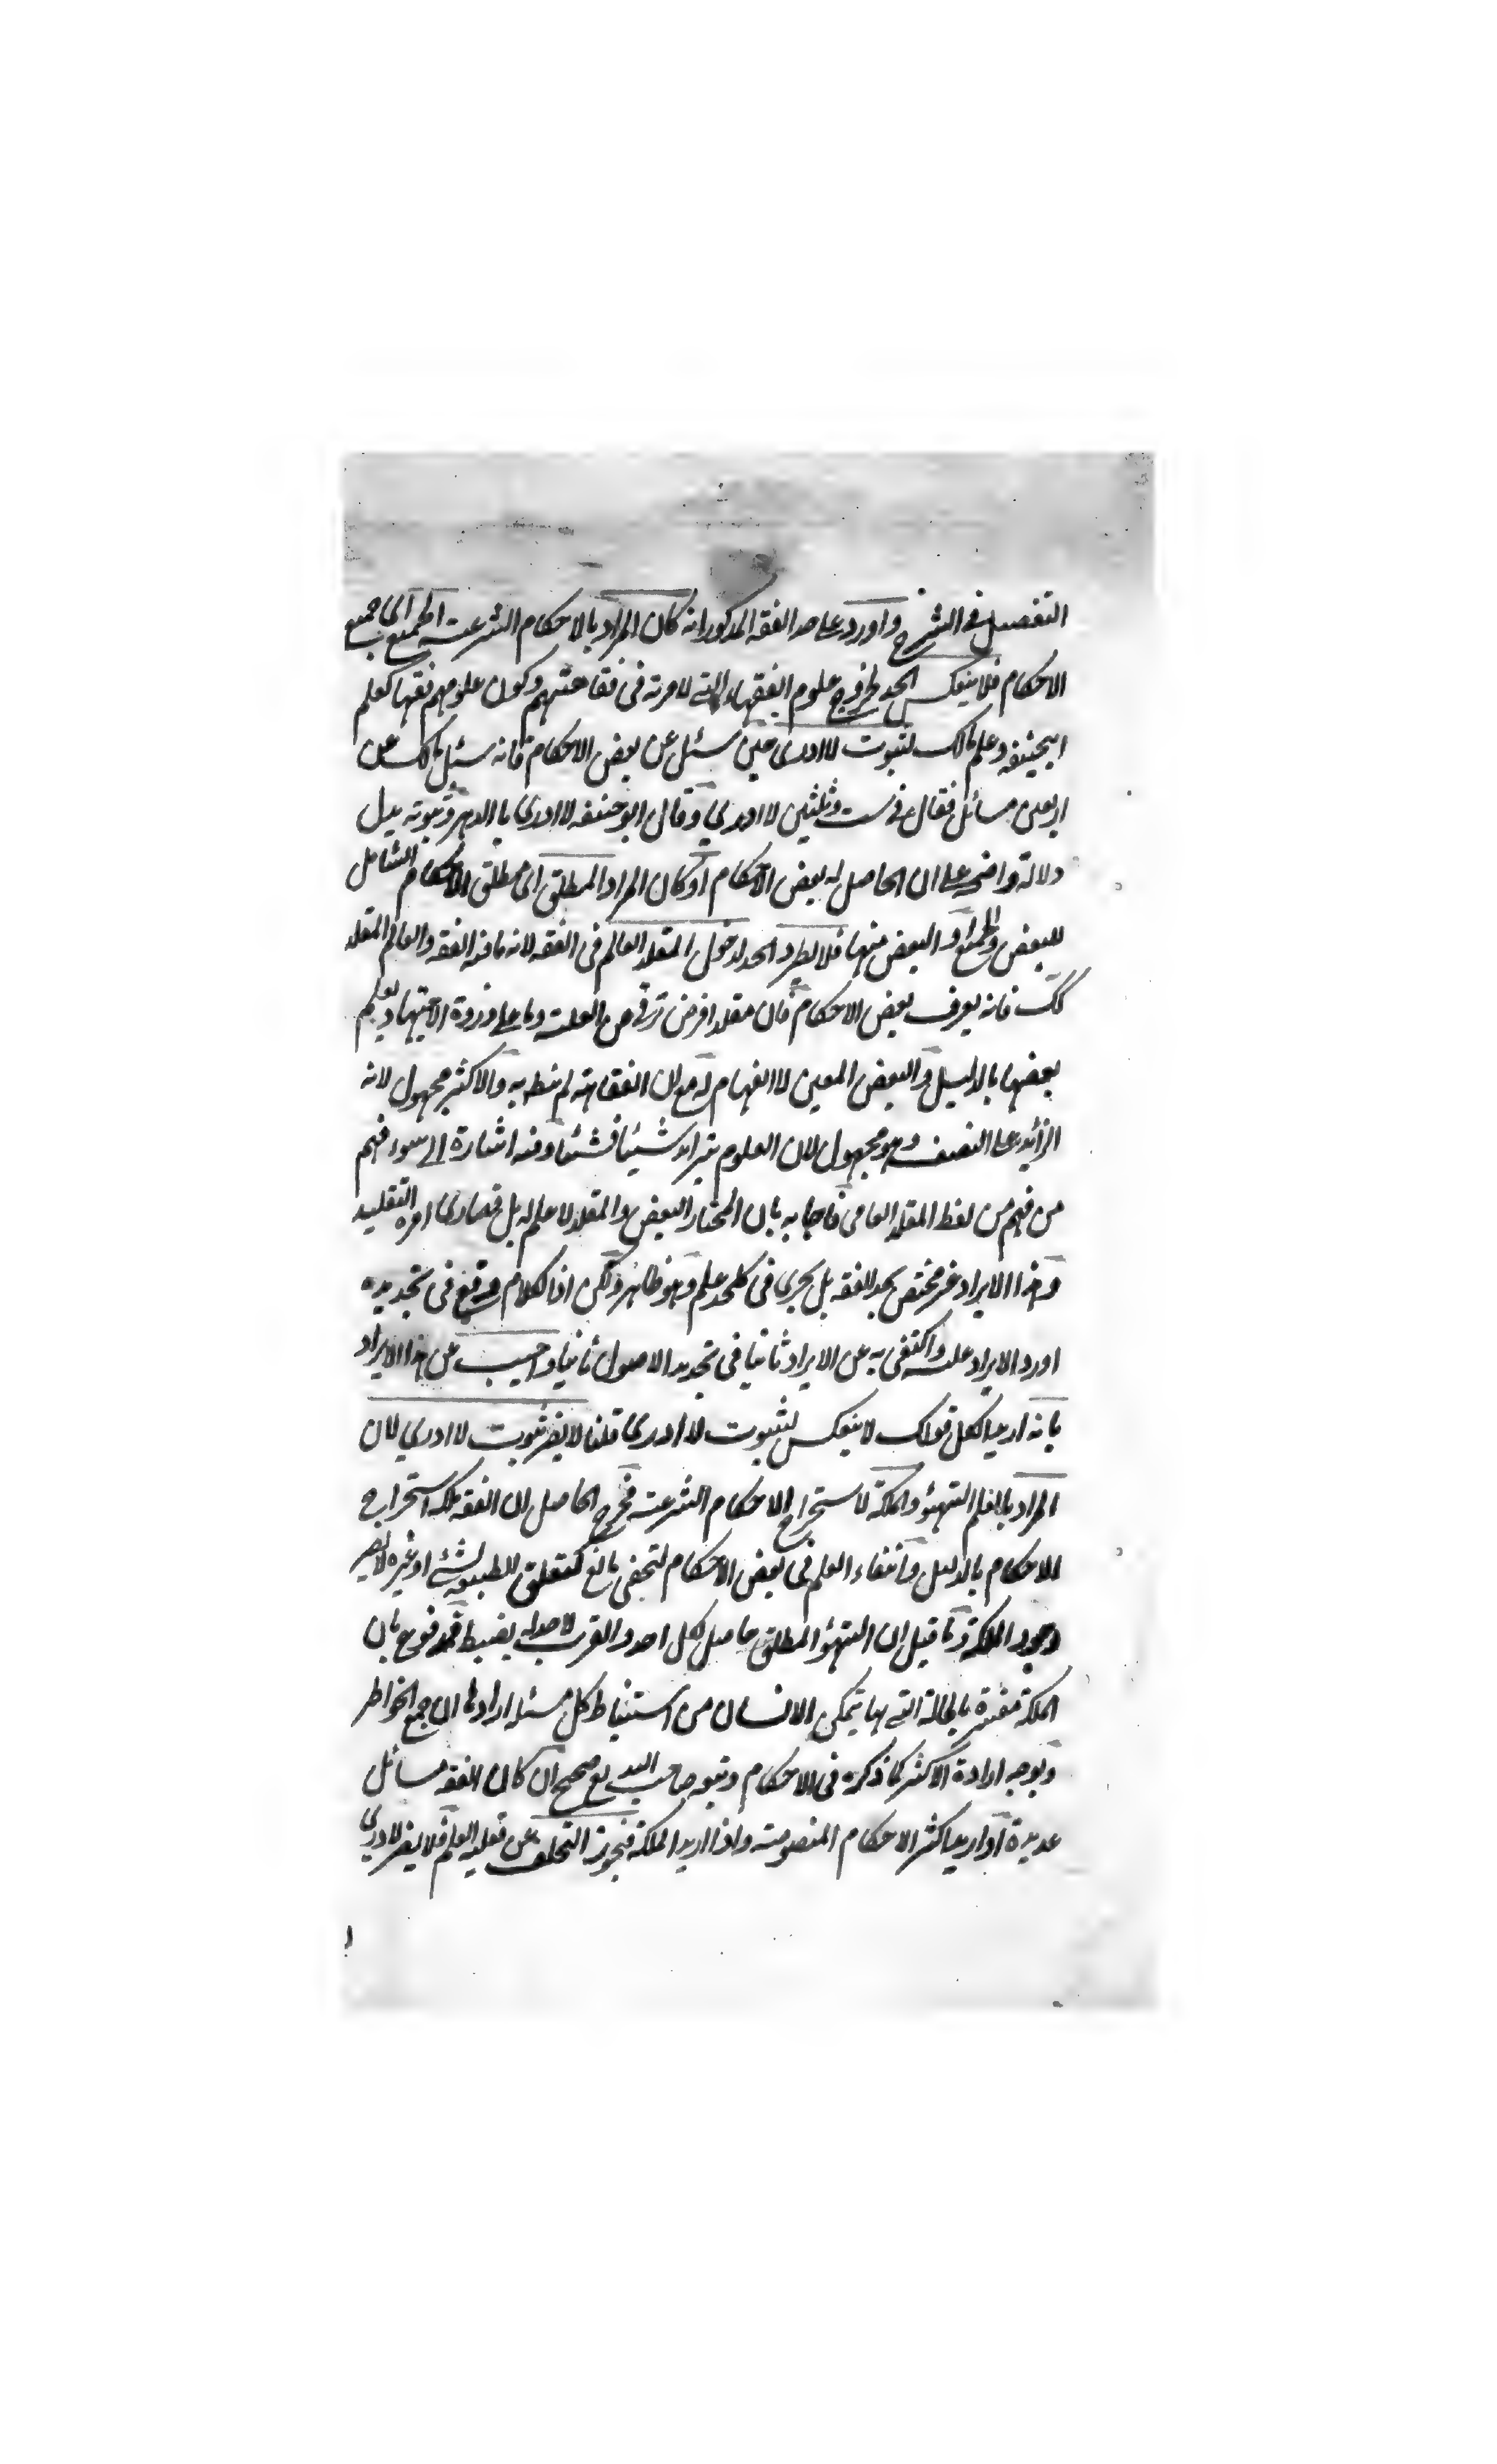 التفصيل في الشرح واورد على حد الفقه المذكور انه كان المراد بالاحكام الشرعية الجميع اي جميع
الاحكام فلا ينعكس الحد لخروج علوم الفقهاء التي لا مرية في فقاهتهم وكون علومهم فقها كعلم
ابيحنيفه وعلم مالك لثبوت لا ادري حين سئل عن بعض الاحكام فانه سئل مالك عن
اربعين مسائل فقال في ست وثلثين لا ادري وقال ابو حنيفه لا ادري ما الدهر وثبوته يدل
دلالة واضحة على ان الحاصل له بعض الاحكام او كان المراد المطلق اي مطلق الاحكام الشامل
للبعض والجميع او البعض منها فلا يطرد الحد لدخول المقلد العالم في الفقه لانه ما فيه الفقه والعالم المقلد
كك فانه يعرف بعض الاحكام فان مقلدا فرض ترقى من العلية وما على ذروة الاجتهاد يعلم
بعضها بالدليل والبعض المعين لا انفهام له مع ان الفقاهة لم ينط به والاكثر مجهول لانه
الزائد على النصف وهو مجهول لان العلوم يتزايد شيئا فشيئا وفيه اشارة الى سوء فهم
من فهم من لفظ المقلد العامي فاجابه بان المختار البعض والمقلد لا علم له بل قصارى امره التقليد
وهذا الايراد غير مختص بحد الفقه بل يجري في كل حد علم وهو ظاهر ولكن اذا الكلام وقع في تحديده
اورد الايراد عليه واكتفى به عن الايراد ثانيا في تحديد الاصول ثانيا واجيب عن هذا الايراد
بانه اريد الكل قولك لا ينعكس لثبوت لا ادري قلنا لا يضر ثبوت لا ادري لان
المراد بالعلم التهيؤ والملكة لاستخراج الاحكام الشرعية فخرج الحاصل ان الفقه ملكة استخراج
الاحكام بالدليل وانتفاء العلم في بعض الاحكام لتخفي مانع كتعلق الطبيعة لشيء او غيره لا يضر
وجود الملكة وما قيل ان التهيؤ المطلق حاصل لكل احد والقرب لا حد له يضبط فمدفوع بان
الملكة مفسرة بالحالة التي بها يتمكن الانسان من استنباط كل مسئلة ارادها ان جمع الخواطر
وبوجه ارادة الاكثر كما ذكره في الاحكام وتبعه صاحب البديع صحيح ان كان الفقه مسائل
عديدة او اريد اكثر الاحكام المنصوصة واذا اريد الملكة فيجوز التخلف عن فعلية العلم فلا يضر لا ادري